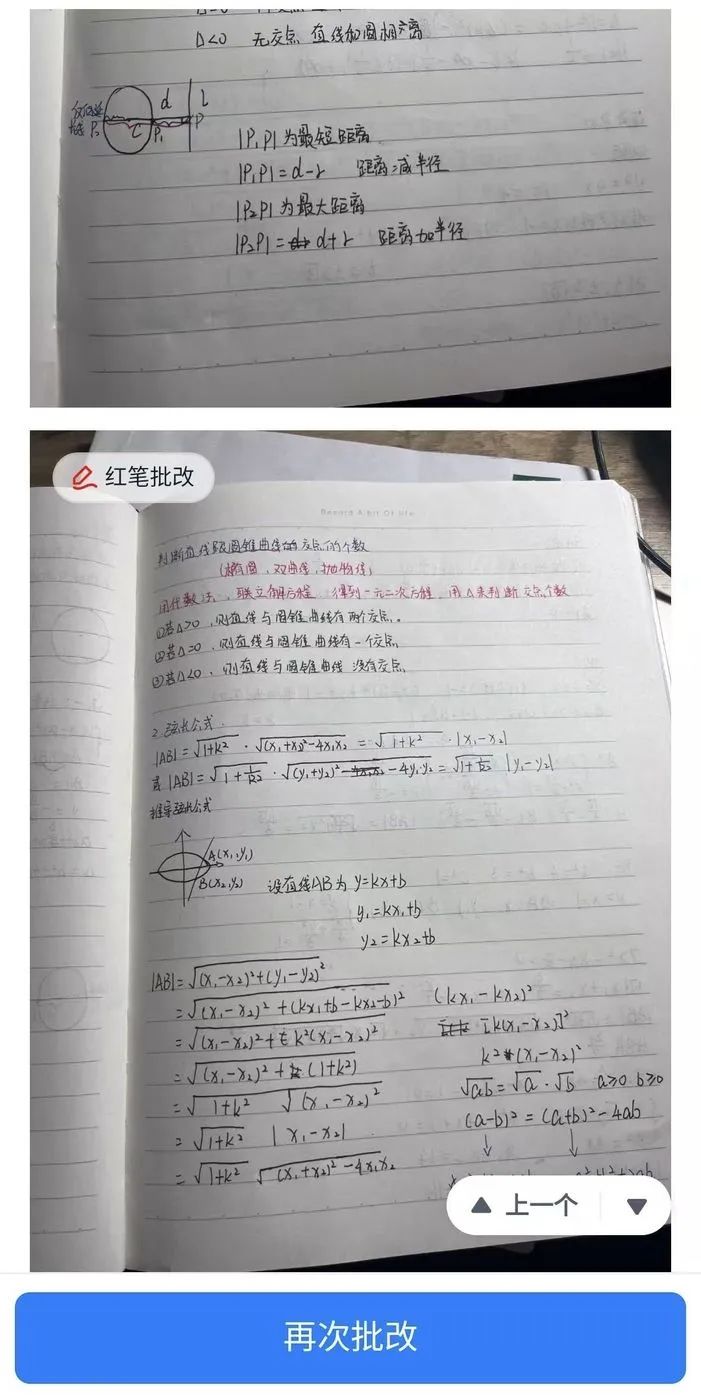 Δ<0 无交点 直线和圆相离
d l
P₂ C P₁ P
|P₁P|为最短距离
|P₁P|=d-r 距离减半径
|P₂P|为最大距离
|P₂P|= d+r 距离加半径
红笔批改
Record A bit Of life
判断直线跟圆锥曲线的交点的个数
(椭圆、双曲线、抛物线)
用代数法,联立解方程 得到一元二次方程,用Δ来判断交点个数
①若Δ>0,则直线与圆锥曲线有两个交点。
②若Δ=0,则直线与圆锥曲线有一个交点
③若Δ<0,则直线与圆锥曲线没有交点
2.弦长公式.
|AB|=√(1+k²)·√((x₁+x₂)²-4x₁x₂) = √(1+k²)·|x₁-x₂|
或|AB|=√(1+1/k²)·√((y₁+y₂)²-4y₁y₂) = √(1+1/k²) |y₁-y₂|
推导弦长公式
A(x₁,y₁)
B(x₂,y₂) 设直线AB为 y=kx+b
y₁=kx₁+b
y₂=kx₂+b
|AB|=√((x₁-x₂)²+(y₁-y₂)²)
=√((x₁-x₂)²+(kx₁+b-kx₂-b)²) (kx₁-kx₂)²
=√((x₁-x₂)²+k²(x₁-x₂)²) [k(x₁-x₂)]²
k²(x₁-x₂)²
=√((x₁-x₂)²+(1+k²))
√ab=√a·√b a≥0 b≥0
=√(1+k²) √((x₁-x₂)²)
(a-b)²=(a+b)²-4ab
=√(1+k²) |x₁-x₂|
=√(1+k²) √((x₁+x₂)²-4x₁x₂)
上一个
再次批改